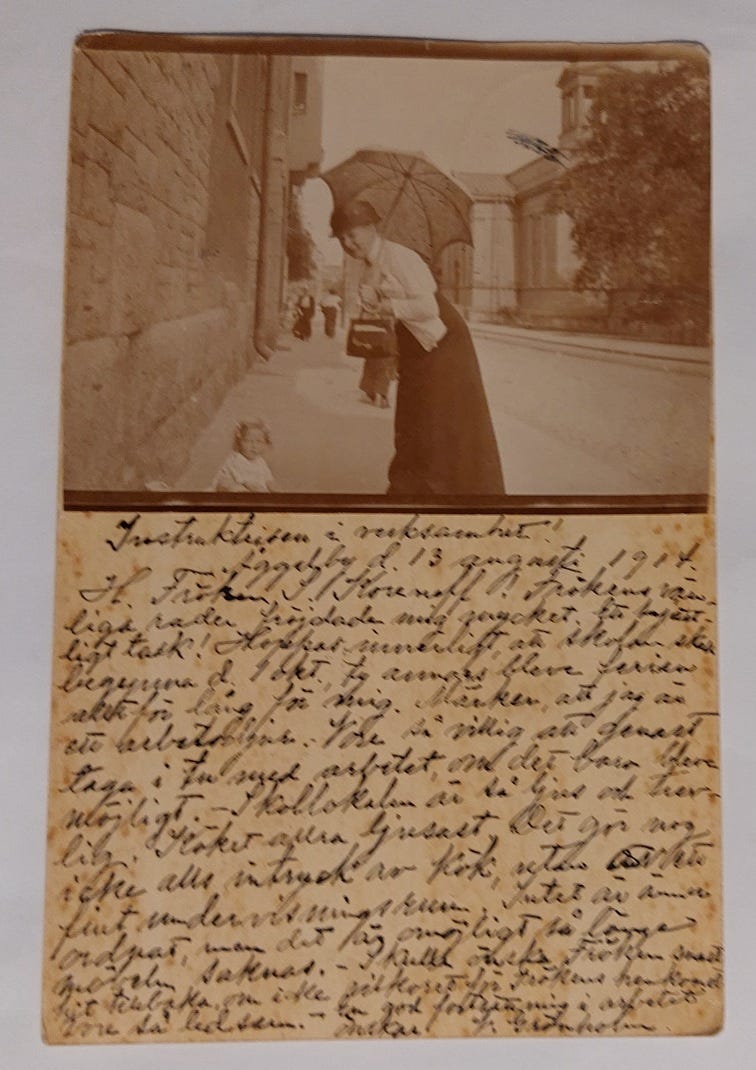 Instruktrisen i verksamhet!
Åggelby d. 13 augusti 1914.
H. Fröken S. Korenoff! Frökens vän-
liga rader fröjdade mig mycket. Ett hjärt-
ligt tack! Hoppas innerligt, att skolan skall
begynna d. 1 okt, ty annars bleve ferien
allt för lång för mig. Märker, att jag är
ett arbetsbi. Vore så villig att genast
taga i tu med arbetet, om det bara bleve
möjligt. – Skollokalen är så ljus och trev-
lig. Köket allra ljusast. Det gör nog
icke alls intryck av kök, utan av ett
fint undervisningsrum. Intet är ännu
ordnat, men det är omöjligt så länge
möbeln saknas. – Skulle önska Fröken snart
hit tillbaka, om icke villkoret för Frökens hemkomst
vore så ledsam. – En god fortsättning i arbetet
önskar Grönholm.